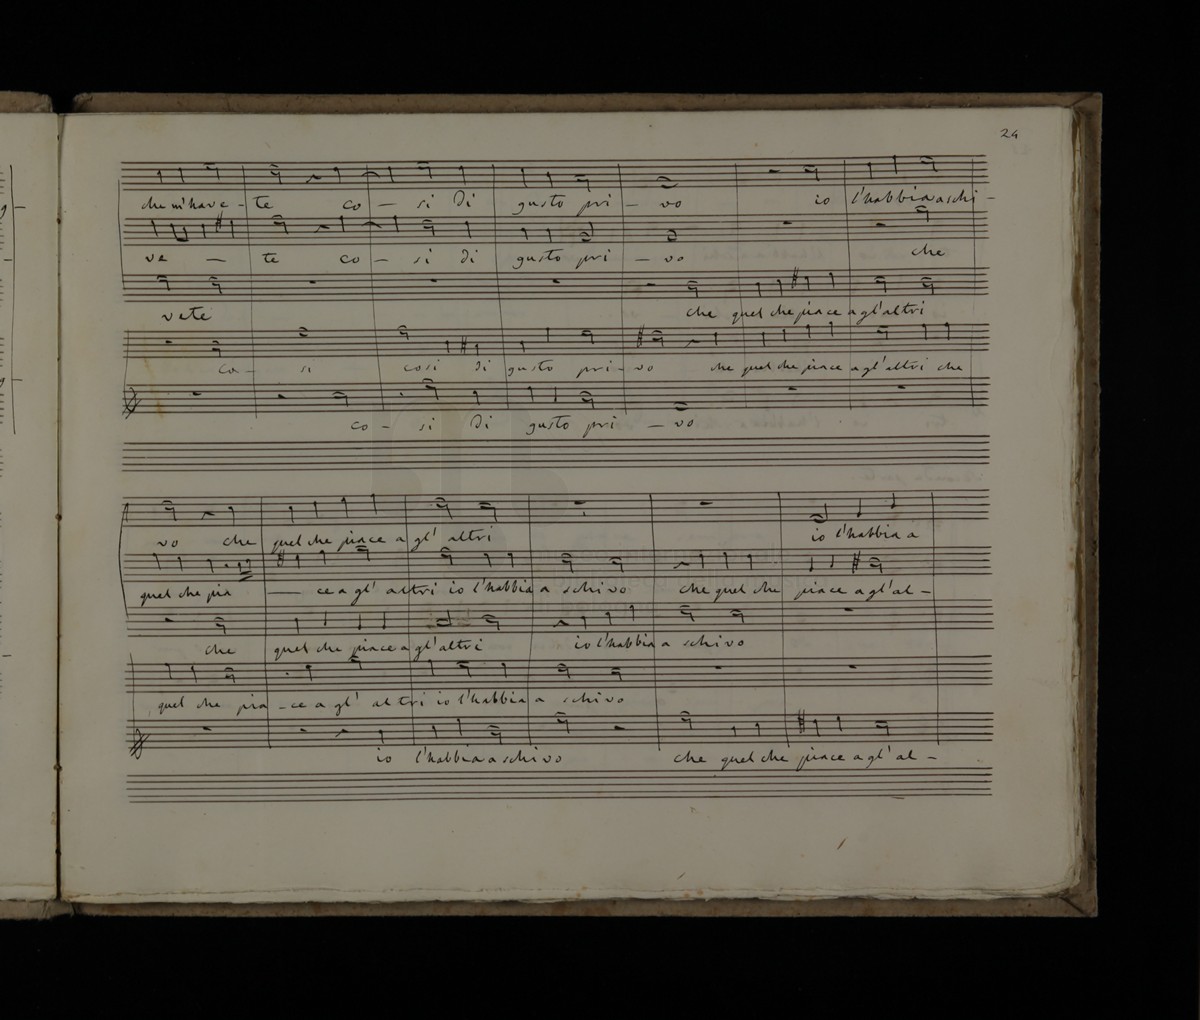 24
che m'have - te co - si di gusto pri - vo io l'habbia a schi -
ve - te co - si di gusto pri - vo che
vete che quel che piace a gl'altri
co - si cosi di gusto pri - vo che quel che piace a gl'altri che
co - si di gusto pri - vo
vo che quel che piace a gl' altri io l'habbia a
quel che pia - ce a gl' altri io l'habbia a schivo che quel che piace a gl'al -
che quel che piace a gl'altri io l'habbia a schivo
quel che pia - ce a gl' altri io l'habbia a schivo
io l'habbia a schivo che quel che piace a gl'al -